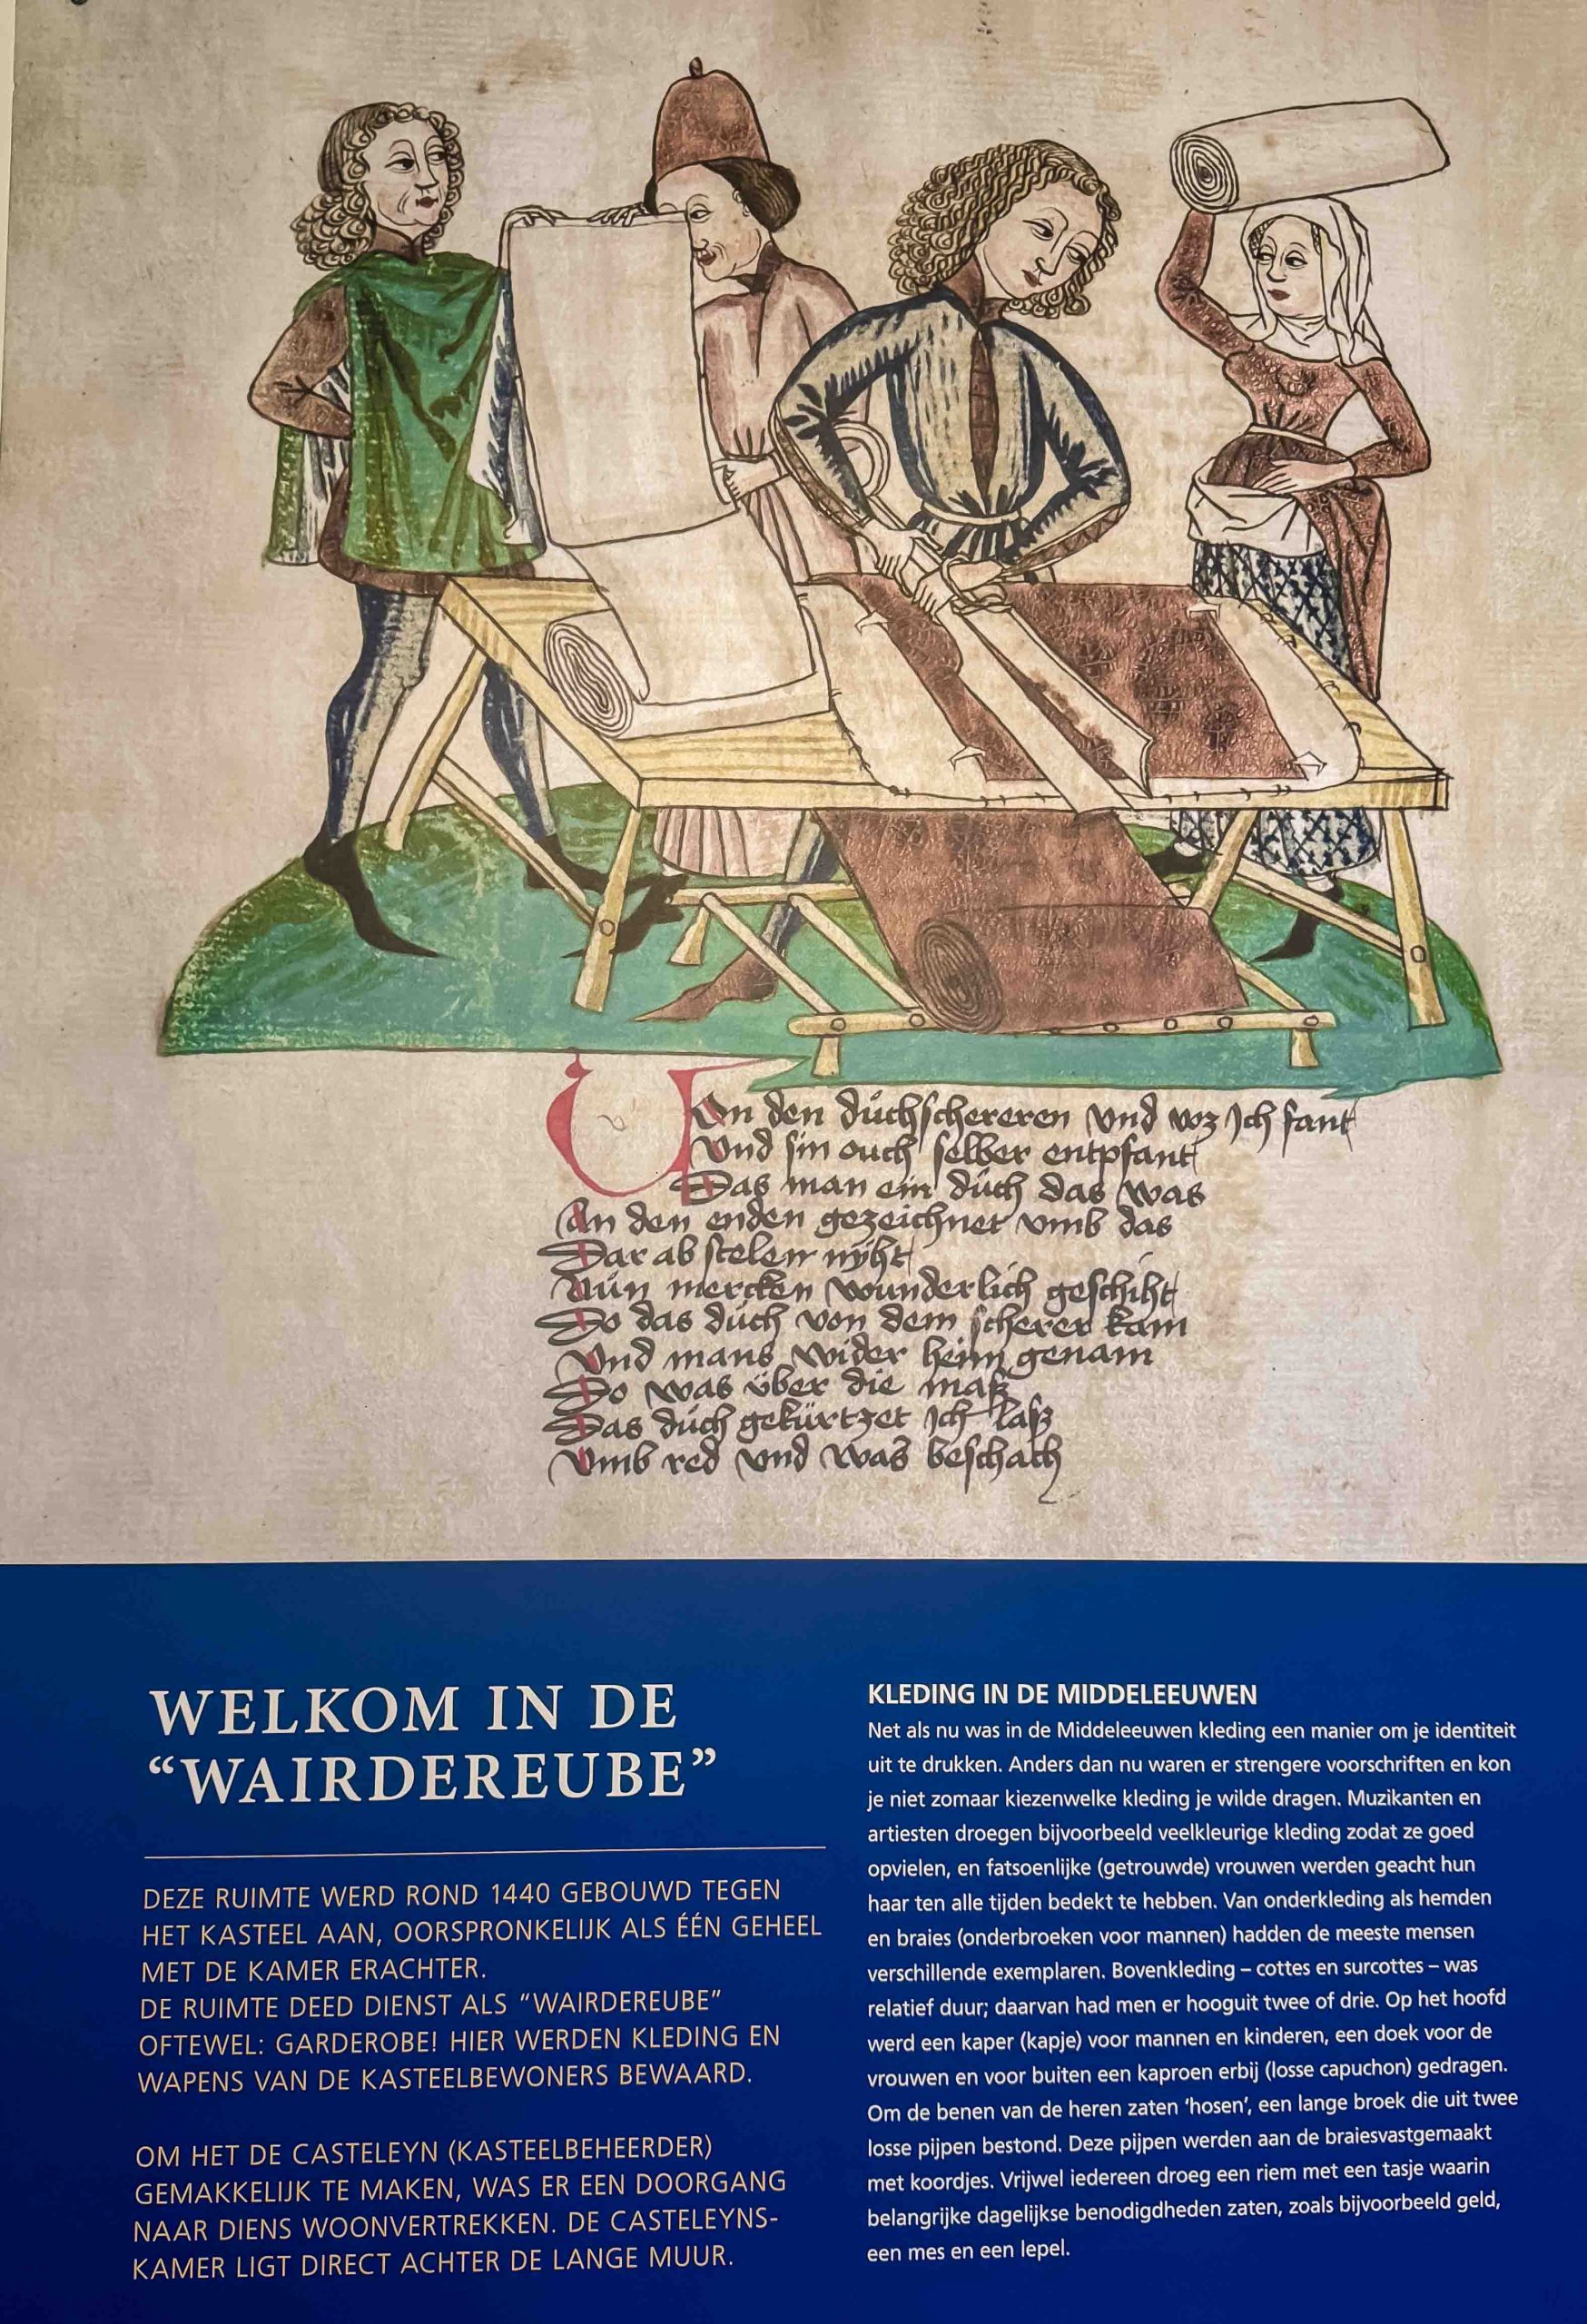 Von den důchschereren vnd voz Ich fant
Vnd sin ouch selber entpfant
Das man ein důch das was
An den enden gezeichnet vmb das
Dar ab stelen nÿht
Nůn mercken wunderlich geschiht
Do das důch von dem scherer kam
Vnd mans wider heim genam
Do was über die maß
Das důch gekürtzet Ich laß
Vmb red vnd was beschach
WELKOM IN DE
“WAIRDEREUBE”
DEZE RUIMTE WERD ROND 1440 GEBOUWD TEGEN
HET KASTEEL AAN, OORSPRONKELIJK ALS ÉÉN GEHEEL
MET DE KAMER ERACHTER.
DE RUIMTE DEED DIENST ALS “WAIRDEREUBE”
OFTEWEL: GARDEROBE! HIER WERDEN KLEDING EN
WAPENS VAN DE KASTEELBEWONERS BEWAARD.
OM HET DE CASTELEYN (KASTEELBEHEERDER)
GEMAKKELIJK TE MAKEN, WAS ER EEN DOORGANG
NAAR DIENS WOONVERTREKKEN. DE CASTELEYNS-
KAMER LIGT DIRECT ACHTER DE LANGE MUUR.
KLEDING IN DE MIDDELEEUWEN
Net als nu was in de Middeleeuwen kleding een manier om je identiteit
uit te drukken. Anders dan nu waren er strengere voorschriften en kon
je niet zomaar kiezenwelke kleding je wilde dragen. Muzikanten en
artiesten droegen bijvoorbeeld veelkleurige kleding zodat ze goed
opvielen, en fatsoenlijke (getrouwde) vrouwen werden geacht hun
haar ten alle tijden bedekt te hebben. Van onderkleding als hemden
en braies (onderbroeken voor mannen) hadden de meeste mensen
verschillende exemplaren. Bovenkleding – cottes en surcottes – was
relatief duur; daarvan had men er hooguit twee of drie. Op het hoofd
werd een kaper (kapje) voor mannen en kinderen, een doek voor de
vrouwen en voor buiten een kaproen erbij (losse capuchon) gedragen.
Om de benen van de heren zaten ‘hosen’, een lange broek die uit twee
losse pijpen bestond. Deze pijpen werden aan de braiesvastgemaakt
met koordjes. Vrijwel iedereen droeg een riem met een tasje waarin
belangrijke dagelijkse benodigdheden zaten, zoals bijvoorbeeld geld,
een mes en een lepel.